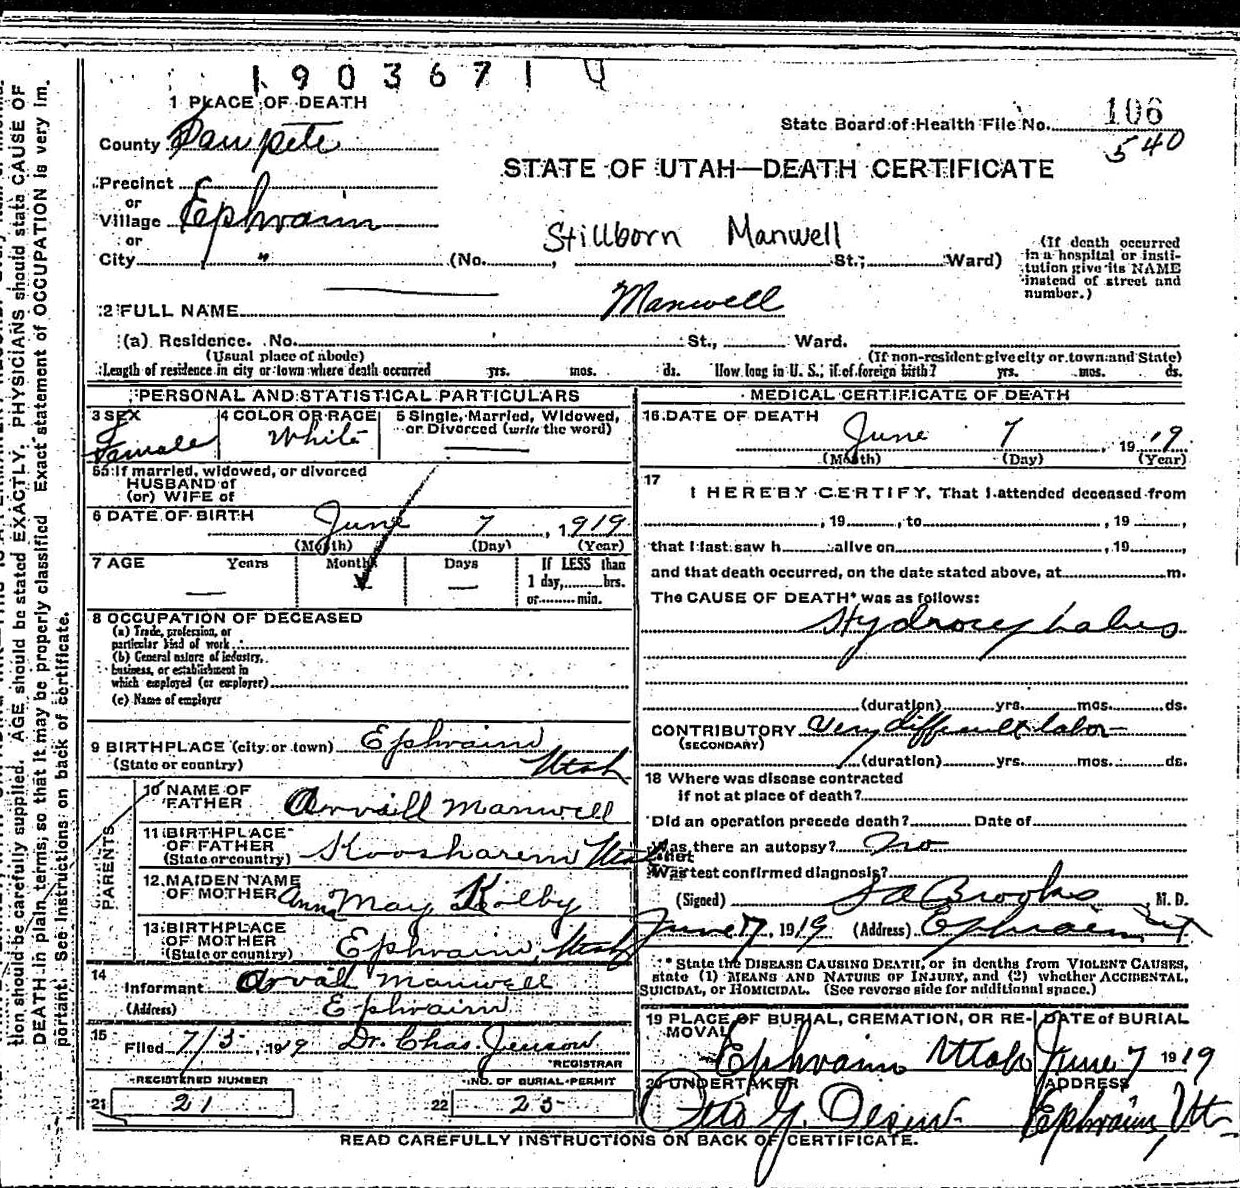 1903671
1 PLACE OF DEATH
State Board of Health File No. 106
540
County Sanpete
STATE OF UTAH—DEATH CERTIFICATE
Precinct
or
Village Ephraim
or
City " (No. , St.; Ward)
Stillborn Manwell
(If death occurred
in a hospital or insti-
tution give its NAME
instead of street and
number.)
2 FULL NAME Manwell
(a) Residence. No. St., Ward.
(Usual place of abode) (If non-resident give city or town and State)
Length of residence in city or town where death occurred yrs. mos. ds. How long in U. S., if of foreign birth? yrs. mos. ds.
PERSONAL AND STATISTICAL PARTICULARS
3 SEX
Female
4 COLOR OR RACE
White
5 Single, Married, Widowed,
or Divorced (write the word)
5a If married, widowed, or divorced
HUSBAND of
(or) WIFE of
6 DATE OF BIRTH June 7, 1919
(Month) (Day) (Year)
7 AGE Years Months Days If LESS than
1 day, hrs.
or min.
8 OCCUPATION OF DECEASED
(a) Trade, profession, or
particular kind of work
(b) General nature of industry,
business, or establishment in
which employed (or employer)
(c) Name of employer
9 BIRTHPLACE (city or town) Ephraim
(State or country) Utah
PARENTS
10 NAME OF
FATHER Orvaill Manwell
11 BIRTHPLACE
OF FATHER
(State or country) Koosharem Utah
12 MAIDEN NAME
OF MOTHER Anna May Kolby
13 BIRTHPLACE
OF MOTHER
(State or country) Ephraim, Utah
14
Informant Orvall Manwell
(Address) Ephraim
15
Filed 7/3, 1919 Dr. Chas. Jenson
REGISTRAR
REGISTERED NUMBER
21 21
NO. OF BURIAL PERMIT
22 25
MEDICAL CERTIFICATE OF DEATH
16 DATE OF DEATH
June 7, 1919
(Month) (Day) (Year)
17
I HEREBY CERTIFY, That I attended deceased from
, 19 , to , 19 ,
that I last saw h alive on , 19 ,
and that death occurred, on the date stated above, at m.
The CAUSE OF DEATH* was as follows:
Hydrocephalus
(duration) yrs. mos. ds.
CONTRIBUTORY Very difficult labor
(SECONDARY)
(duration) yrs. mos. ds.
18 Where was disease contracted
if not at place of death?
Did an operation precede death? Date of
Was there an autopsy? No
What test confirmed diagnosis?
(Signed) Brooks, M. D.
June 7, 1919 (Address) Ephraim, Ut
* State the DISEASE CAUSING DEATH, or in deaths from VIOLENT CAUSES,
state (1) MEANS AND NATURE OF INJURY, and (2) whether ACCIDENTAL,
SUICIDAL, or HOMICIDAL. (See reverse side for additional space.)
19 PLACE OF BURIAL, CREMATION, OR RE-
MOVAL
Ephraim Utah
DATE of BURIAL
June 7 1919
20 UNDERTAKER
Otto G. Olsen
ADDRESS
Ephraim, Ut
READ CAREFULLY INSTRUCTIONS ON BACK OF CERTIFICATE.
tion should be carefully supplied. AGE should be stated EXACTLY. PHYSICIANS should state CAUSE OF
DEATH in plain terms, so that it may be properly classified. Exact statement of OCCUPATION is very im-
portant. See instructions on back of certificate.